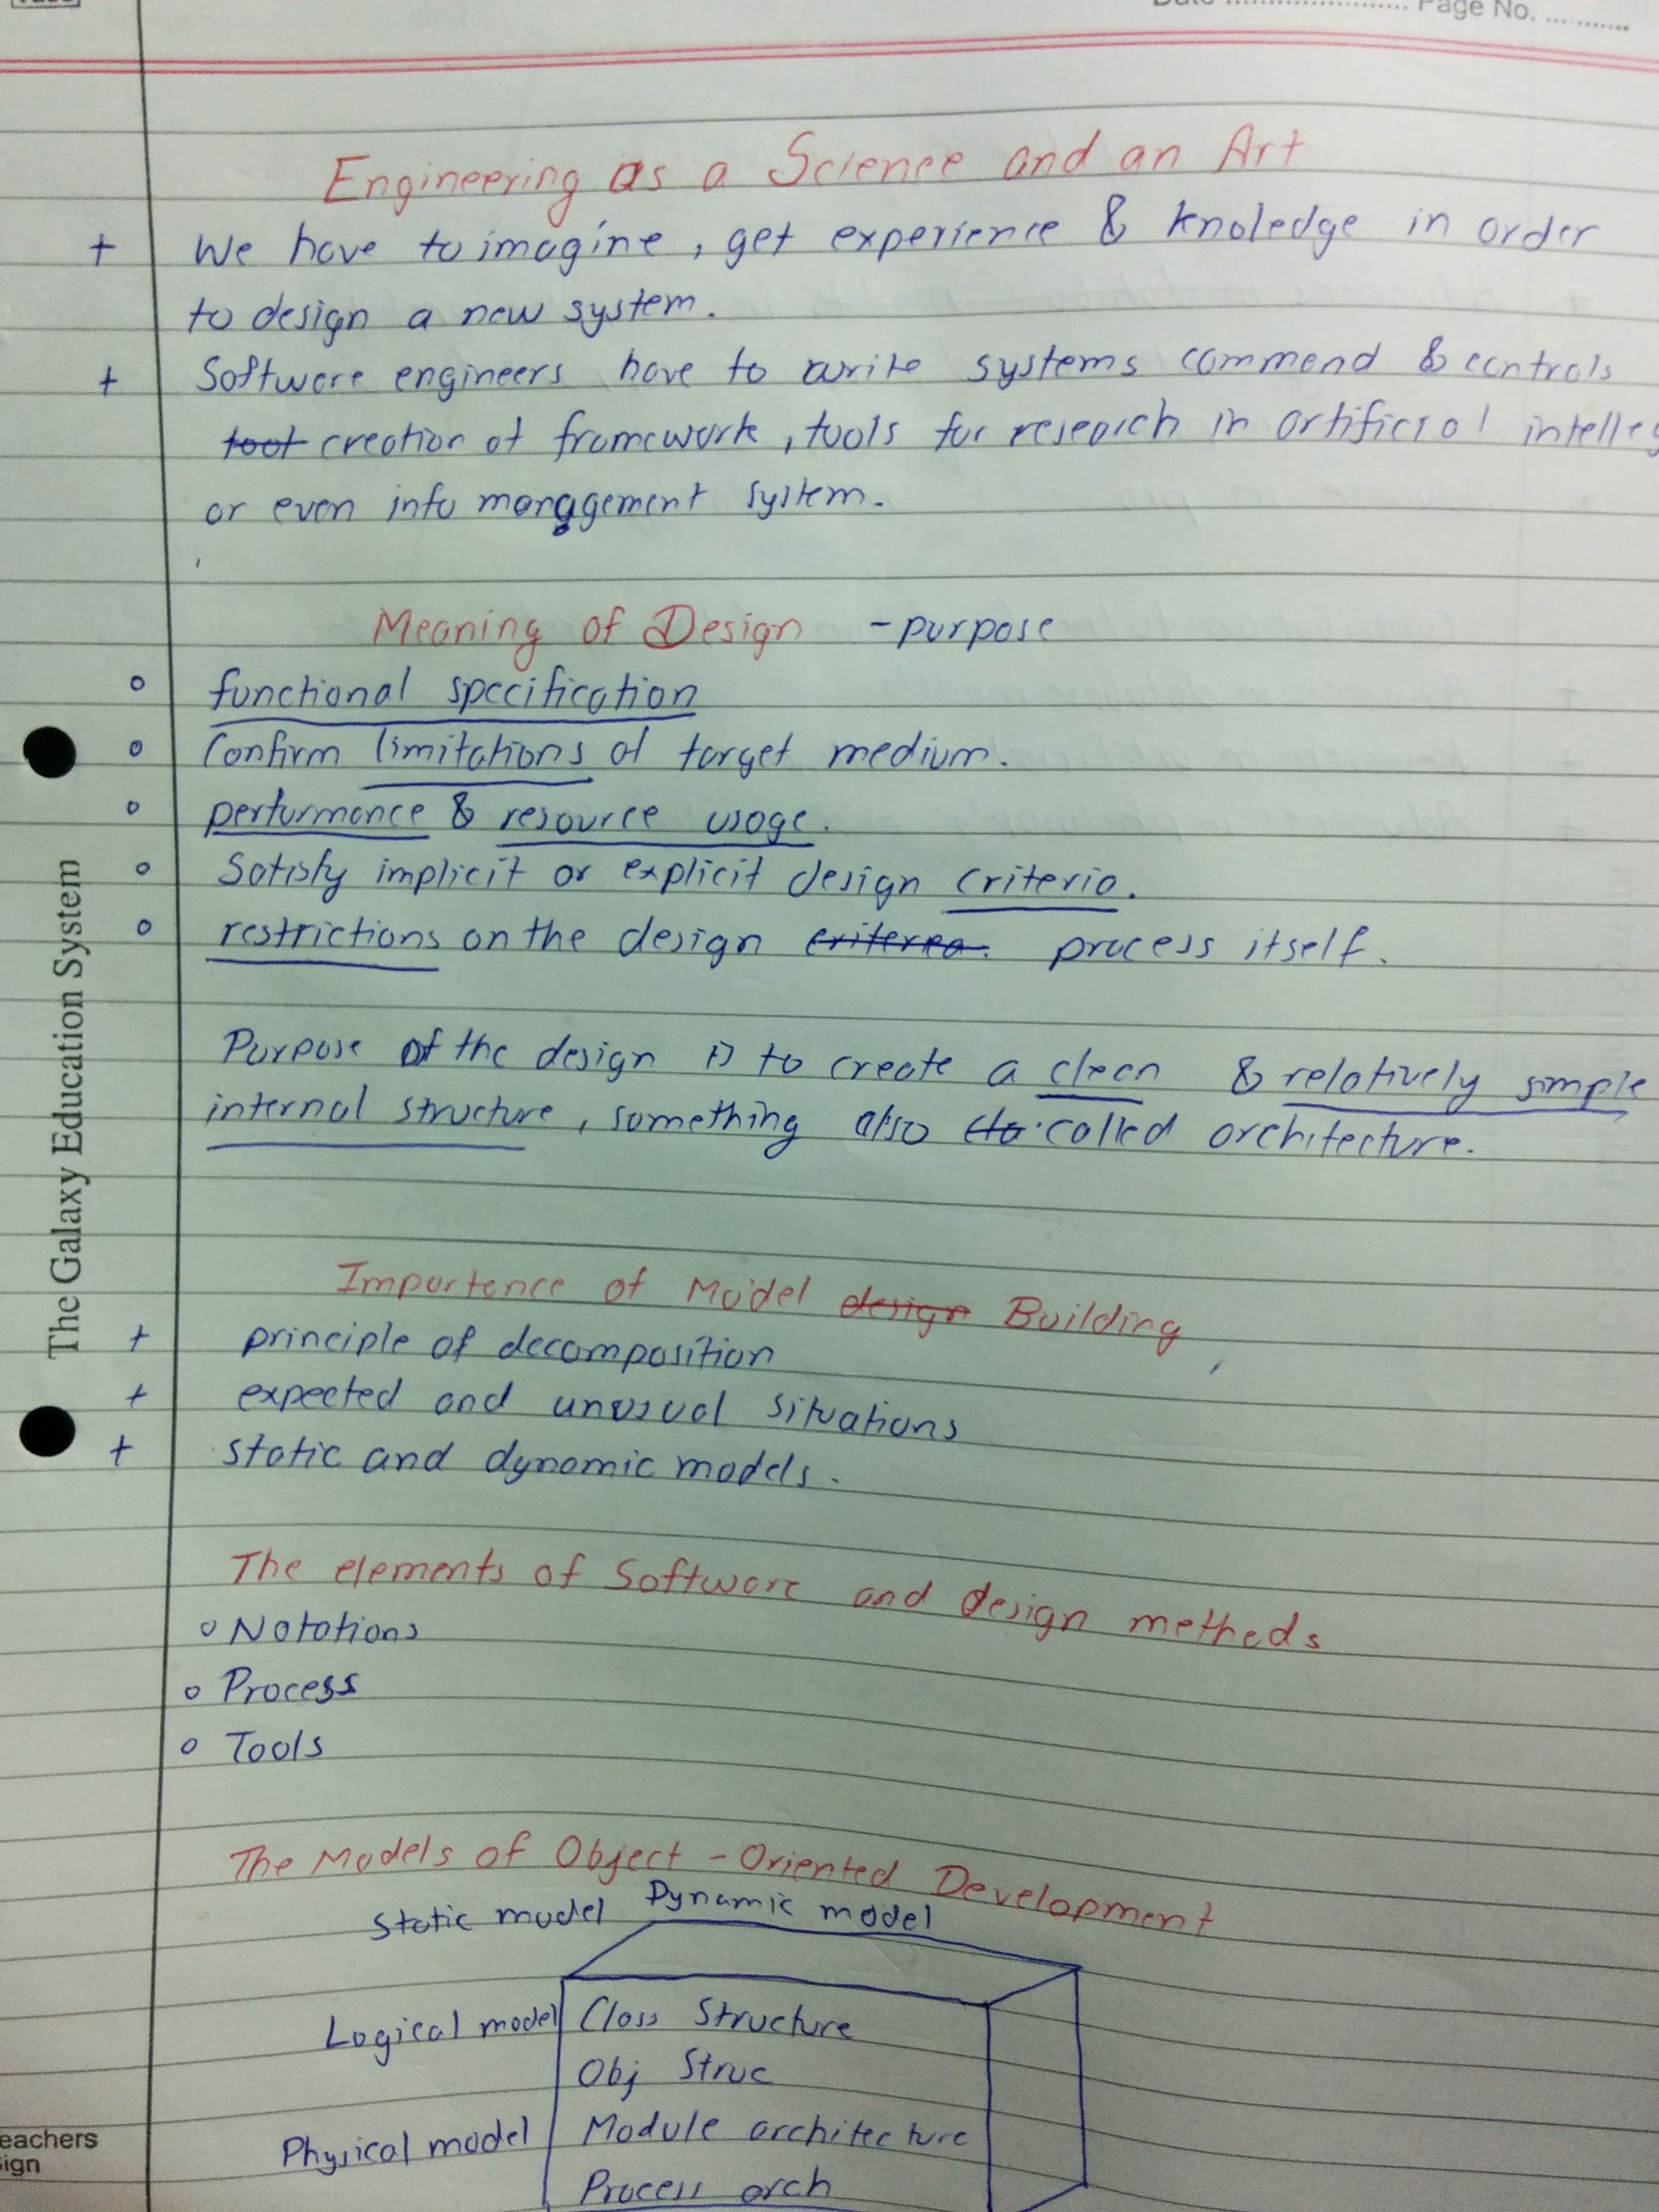 Date ........................ Page No. ............
Engineering as a Science and an Art
+ We have to imagine, get experience & knoledge in order
to design a new system.
+ Software engineers have to write systems commend & controls
toot creation of framework, tools for research in artificial
or even info management system.
Meaning of Design - purpose
o functional specification
o Confirm limitations of target medium.
o performance & resource usage.
o Satisfy implicit or explicit design criteria.
o restrictions on the design criterea. process itself.
Purpose of the design is to create a clean & relatively simple
internal structure, something also called architecture.
Importence of Model design Building
+ principle of decomposition
+ expected and unusual situations
+ static and dynamic models.
The elements of Software and design metheds
o Notations
o Process
o Tools
The Models of Object - Oriented Development
Static model Dynamic model
Logical model Class Structure
Obj Struc
Physical model Module architecture
Process arch
The Galaxy Education System
eachers
ign